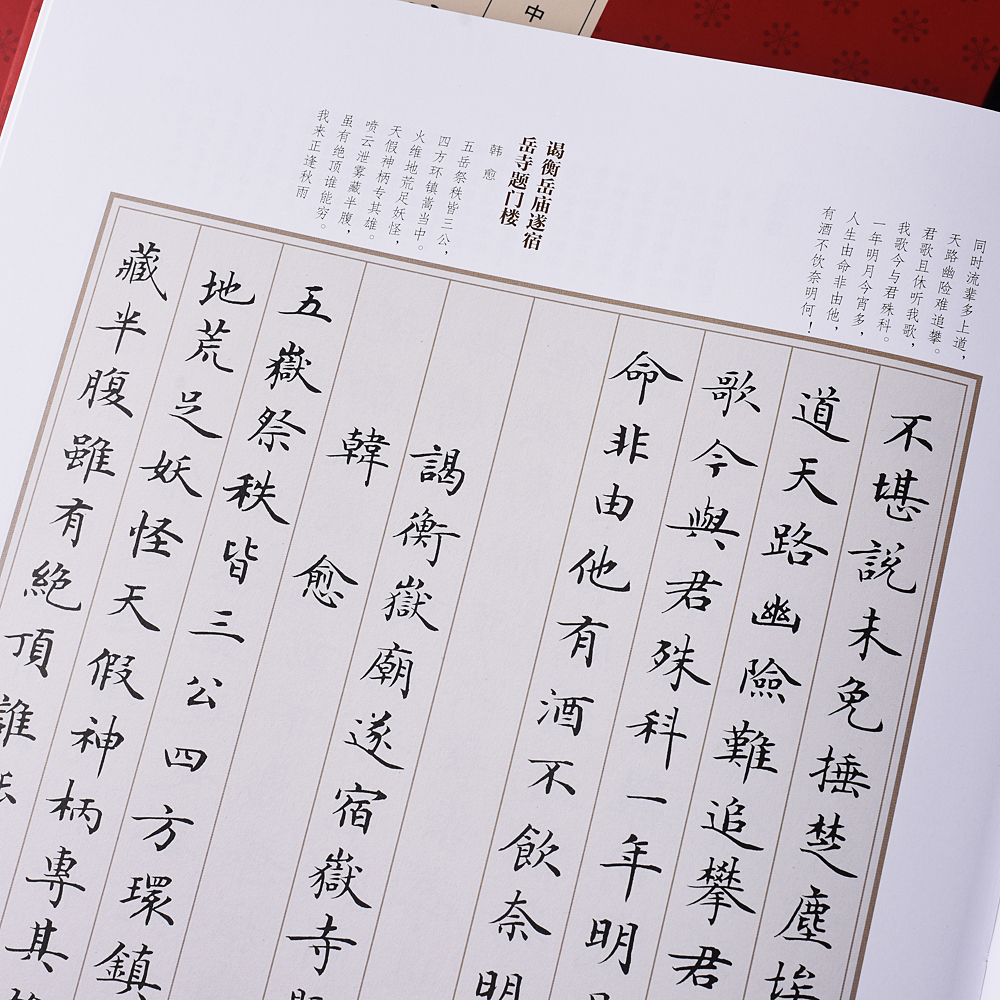 中
同时流辈多上道，
天路幽险难追攀。
君歌且休听我歌，
我歌今与君殊科。
一年明月今宵多，
人生由命非由他，
有酒不饮奈明何！
谒衡岳庙遂宿
岳寺题门楼
韩愈
五岳祭秩皆三公，
四方环镇嵩当中。
火维地荒足妖怪，
天假神柄专其雄。
喷云泄雾藏半腹，
虽有绝顶谁能穷。
我来正逢秋雨
不堪說未免捶楚塵埃
道天路幽險難追攀君
歌今與君殊科一年明
命非由他有酒不飲奈明
謁衡嶽廟遂宿嶽寺
韓愈
五嶽祭秩皆三公四方環鎮
地荒足妖怪天假神柄專其
藏半腹雖有絕頂誰